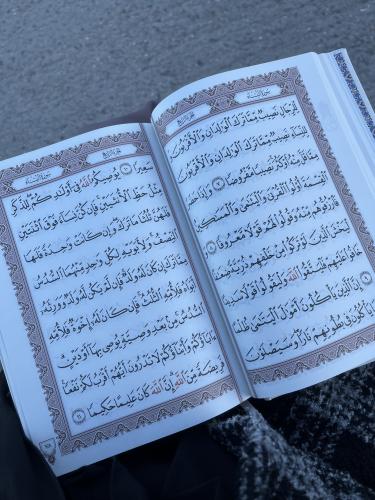 سُورَةُ النِّسَاءِ
الجُزْءُ الرَّابِعُ
لِّلرِّجَالِ نَصِيبٌ مِّمَّا تَرَكَ ٱلْوَٰلِدَانِ وَٱلْأَقْرَبُونَ
وَلِلنِّسَآءِ نَصِيبٌ مِّمَّا تَرَكَ ٱلْوَٰلِدَانِ وَٱلْأَقْرَبُونَ
مِمَّا قَلَّ مِنْهُ أَوْ كَثُرَ نَصِيبًا مَّفْرُوضًا ٧ وَإِذَا حَضَرَ
ٱلْقِسْمَةَ أُوْلُواْ ٱلْقُرْبَىٰ وَٱلْيَتَٰمَىٰ وَٱلْمَسَٰكِينُ
فَٱرْزُقُوهُم مِّنْهُ وَقُولُواْ لَهُمْ قَوْلًا مَّعْرُوفًا ٨
وَلْيَخْشَ ٱلَّذِينَ لَوْ تَرَكُواْ مِنْ خَلْفِهِمْ ذُرِّيَّةً ضِعَٰفًا
خَافُواْ عَلَيْهِمْ فَلْيَتَّقُواْ ٱللَّهَ وَلْيَقُولُواْ قَوْلًا سَدِيدًا
٩ إِنَّ ٱلَّذِينَ يَأْكُلُونَ أَمْوَٰلَ ٱلْيَتَٰمَىٰ ظُلْمًا
إِنَّمَا يَأْكُلُونَ فِي بُطُونِهِمْ نَارًا وَسَيَصْلَوْنَ
الجُزْءُ الرَّابِعُ
سُورَةُ النِّسَاءِ
سَعِيرًا ١٠ يُوصِيكُمُ ٱللَّهُ فِيٓ أَوْلَٰدِكُمْ لِلذَّكَرِ
مِثْلُ حَظِّ ٱلْأُنثَيَيْنِ فَإِن كُنَّ نِسَآءً فَوْقَ ٱثْنَتَيْنِ
فَلَهُنَّ ثُلُثَا مَا تَرَكَ وَإِن كَانَتْ وَٰحِدَةً فَلَهَا
ٱلنِّصْفُ وَلِأَبَوَيْهِ لِكُلِّ وَٰحِدٍ مِّنْهُمَا ٱلسُّدُسُ
مِمَّا تَرَكَ إِن كَانَ لَهُۥ وَلَدٌ فَإِن لَّمْ يَكُن لَّهُۥ وَلَدٌ وَوَرِثَهُۥٓ
أَبَوَاهُ فَلِأُمِّهِ ٱلثُّلُثُ فَإِن كَانَ لَهُۥٓ إِخْوَةٌ فَلِأُمِّهِ
ٱلسُّدُسُ مِنۢ بَعْدِ وَصِيَّةٍ يُوصِي بِهَآ أَوْ دَيْنٍ
ءَابَآؤُكُمْ وَأَبْنَآؤُكُمْ لَا تَدْرُونَ أَيُّهُمْ أَقْرَبُ لَكُمْ نَفْعًا
فَرِيضَةً مِّنَ ٱللَّهِ إِنَّ ٱللَّهَ كَانَ عَلِيمًا حَكِيمًا ١١